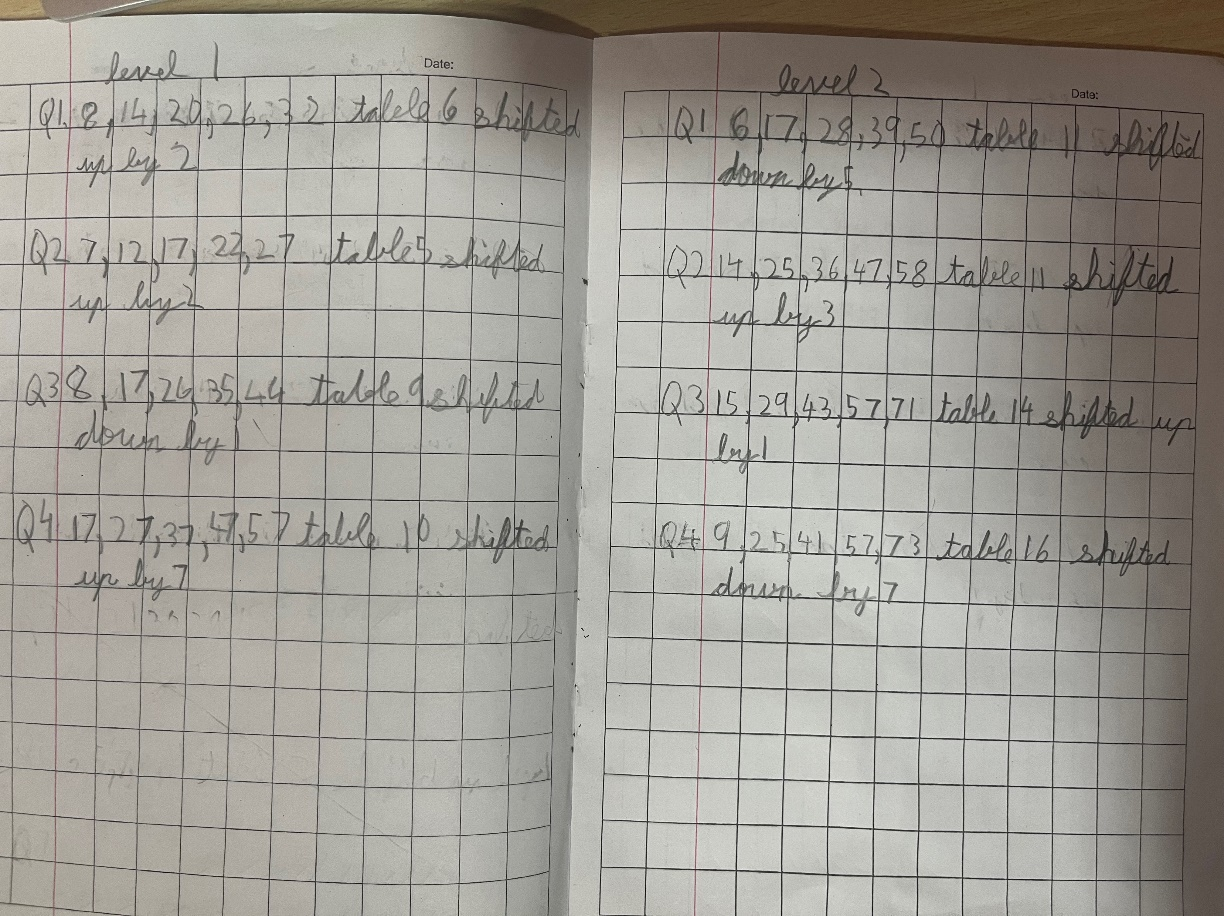 level 1
Date:
Q1. 8, 14, 20, 26, 32 table 6 shifted
up by 2
Q2 7, 12, 17, 22, 27 table 5 shifted
up by 2
Q3 8, 17, 26, 35, 44 table 9 shifted
down by 1
Q4 17, 27, 37, 47, 57 table 10 shifted
up by 7
level 2
Date:
Q1 6, 17, 28, 39, 50 table 11 shifted
down by 5.
Q2 14, 25, 36, 47, 58 table 11 shifted
up by 3
Q3 15, 29, 43, 57, 71 table 14 shifted up
by 1
Q4 9, 25, 41, 57, 73 table 16 shifted
down by 7